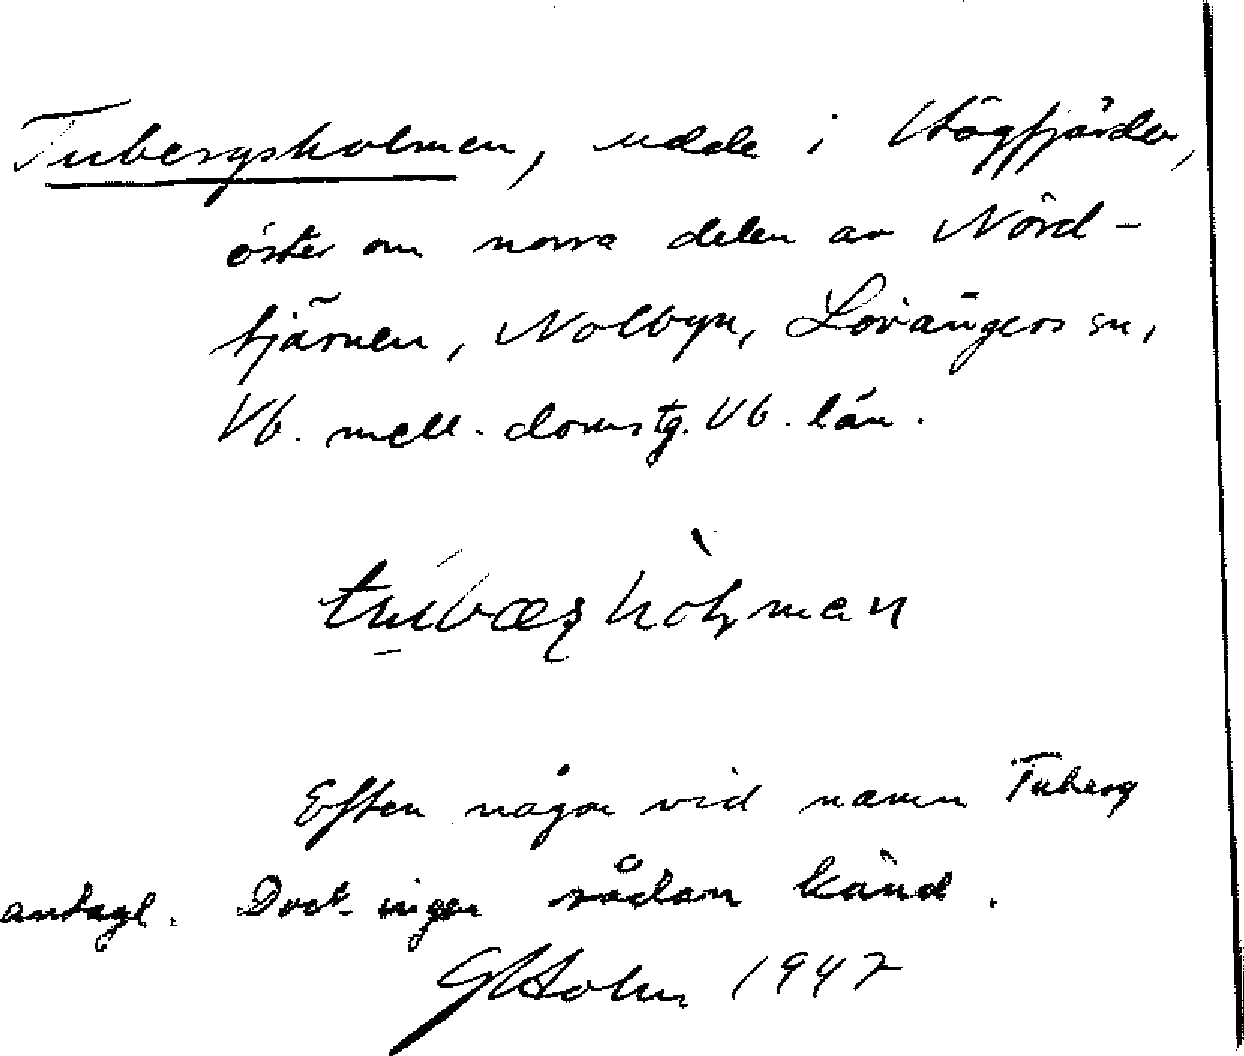 Tubergsholmen, udde i Högfjärden,
öster om norra delen av Nörd-
tjärnen, Nolbyn, Lövångers sn,
Vb. mell. domstg. Vb. län.
Efter någon vid namn Tuberg
antagl. Dock ingen sådan känd.
G Holm 1947